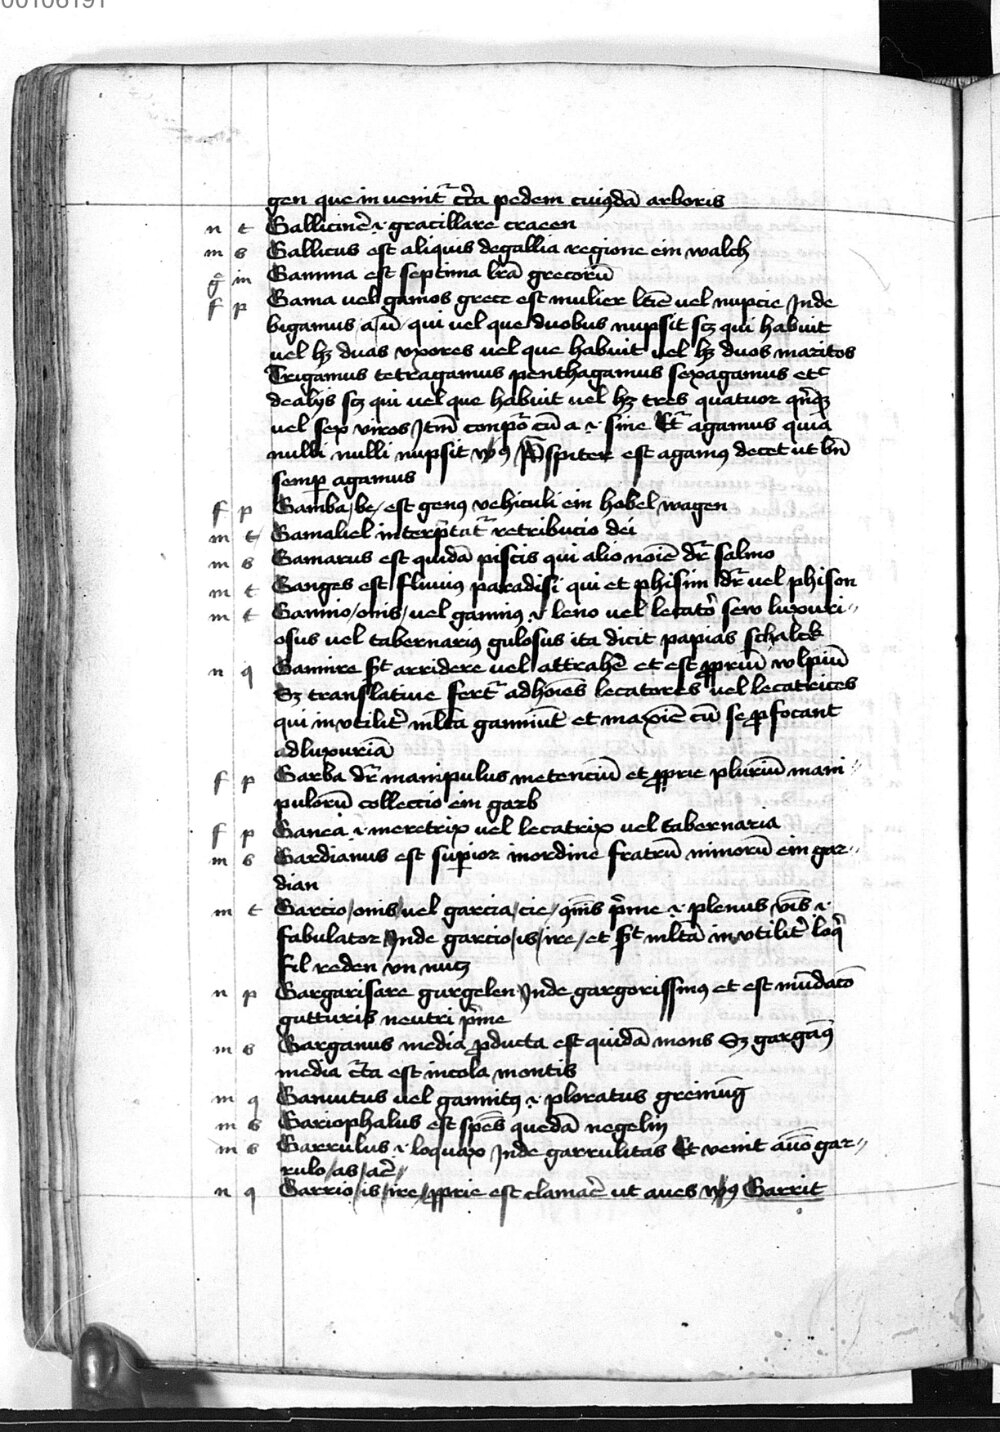 00106191
gen que inuenit᷑ cc̄a pedem cuiꝰdā arboris
n t Gallicinē .i. gracillare craeen
m s Gallicus est aliquis de gallia regione ein walch
g̊ in Gamma est septima lr̄a grecorū
f p Gama uel gamos grece est mulier lat̄e uel nupcie Inde
bigamus / a / ū / qui uel que duobus nupsit scꝫ qui habuit
uel hꝫ duas vxores uel que habuit uel hꝫ duos maritos
Trigamus tetragamus penthagamus sexagamus etc̄
de alijs scꝫ qui uel que habuit uel hꝫ tres quatuor qn̄qꝫ
uel sex viros Itm̄ conpōr cū a .i. sine Et᷑ agamus quia
nulli nulli nupsit vꝰꝰ Pr̄spiter est agamꝰ decet ut bn̄
semꝑ agamus
f p Gamba / be / est genꝰ vehiculi ein hobel wagen
m t Gamaliel interp̄tat᷑ retribucio dei
m s Gamarus est quidā piscis qui alio noīe dr̄ salmo
m t Ganges est fluuiꝰ paradisi qui et phisim dr̄ vel phison
m t Gannio / onis / uel ganniꝰ .i. leno uel lecato᷑ seu luxuri〃
osus uel tabernariꝰ gulosus ita dicit papias schalck
n q Gannire st̄ arridere uel attrahē et est ꝓpriū wlpiū
Sꝫ translatiue fert᷑ ad hoīes lecatores uel lecatrices
qui inutilit᷑ ml̄ta ganniūt et maxīe cū se ꝓfocant
ad luxuriā
f p Garba dr̄ manipulus metenciū et ꝓprie pluriū mani〃
pulorū colleccio ein garb
f p Ganea .i. meretrix uel lecatrix uel tabernaria
m s Gardianus est suꝑior in ordine fratrū minorū ein gar〃
dian
m t Garcio / onis / uel garcia / cie / gn̄is p̄me .i. plenus vīs .i.
fabulator Inde garcio / is / ire / et st̄ ml̄tā inutilit᷑ loq̄
fil reden vn nucꝫ
n p Gargarisare gurgelen Inde gargorissmꝰ et est mūdacō
gutturis neutri p̄me
m s Garganus media ꝓducta est quidā mons Sꝫ gargāꝰ
media c̄ta est incola montis
m q Ganutus uel gannitꝰ .i. ploratus greinūg
m s Gariophalus est spēs quedā negelin
m s Garrulus .i. loquax Inde garrulitas Et venit aūo gar〃
rulo / as / ac̄
n q Garrio / is / ire / ꝓprie est clamac̄ ut aues vꝰꝰ Garrit